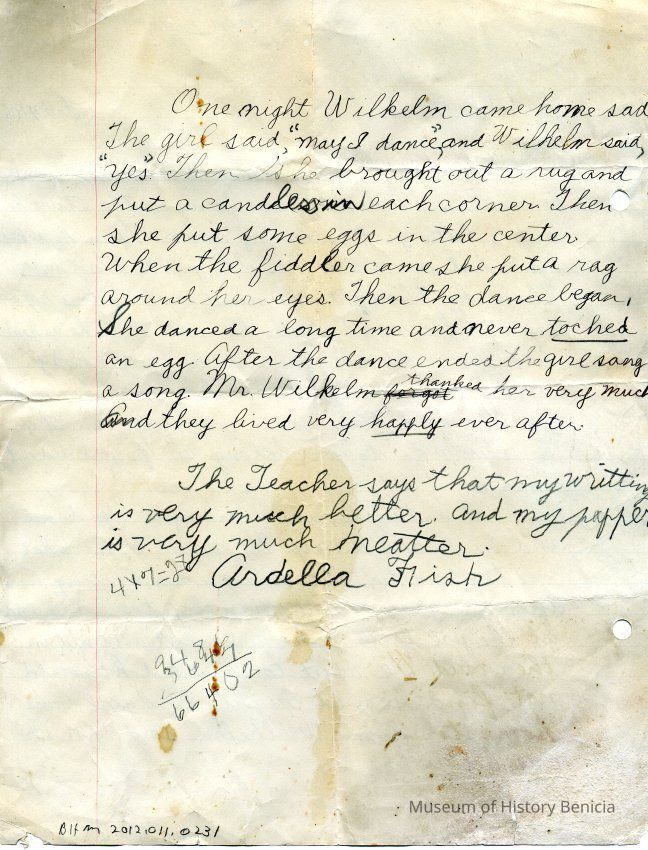 One night Wilkelm came home sad
The girl said, "may I dance", and Wilhelm said,
"Yes". Then she brought out a rug and
put a candles in each corner. Then
she put some eggs in the center
When the fiddler came she put a rag
around her eyes. Then the dance began,
She danced a long time and never toched
an egg. After the dance ended the girl sang
a song. Mr. Wilkelm forgot thanked her very much
And they lived very happly ever after.
The Teacher says that my writting
is very much better. And my papper
is very much neatter.
Ardella Fish
66402
Museum of History Benicia
BHM 2012.011.0231